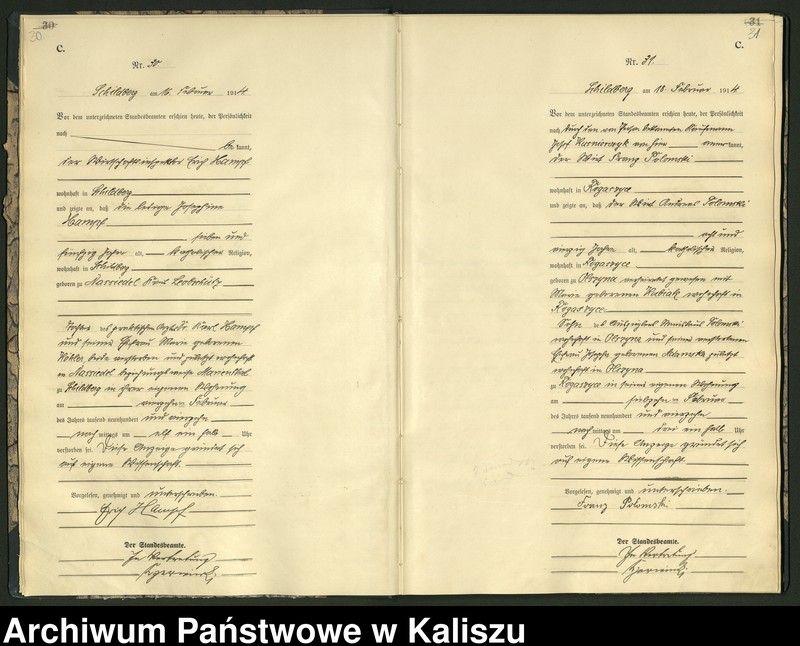 30
30
C.
Nr. 30
Schildberg am 16. Februar 1914
Vor dem unterzeichneten Standesbeamten erschien heute, der Persönlichkeit
nach
be kannt,
der Wirtschaftsinspektor Erich Hampf
wohnhaft in Schildberg
und zeigte an, daß die ledige Josephine
Hampf
sieben und
fünfzig Jahre alt, katholischer Religion,
wohnhaft in Schildberg
geboren zu Nassiedel Kreis Leobschütz
Tochter des praktischen Arztes Dr. Karl Hampf
und seiner Ehefrau Marie geborenen
beide verstorben und zuletzt wohnhaft
in Nassiedel beziehungsweise Marienthal
zu Schildberg in ihrer eigenen Wohnung
am vierzehnten Februar
des Jahres tausend neunhundert und vierzehn
nach mittags um elf ein halb Uhr
verstorben sei. Diese Anzeige gründet sich
auf eigene Wissenschaft.
Vorgelesen, genehmigt und unterschrieben.
Erich Hampf
Der Standesbeamte.
In Vertretung
31
31
C.
Nr. 31.
Schildberg am 18. Februar 1914
Vor dem unterzeichneten Standesbeamten erschien heute, der Persönlichkeit
nach durch den von Person bekannten Kaufmann
Josef von hier aner kannt,
der Wirt Franz Polomski
wohnhaft in Rogaszyce
und zeigte an, daß der Wirt Andreas Polomski
acht und
vierzig Jahre alt, katholischer Religion,
wohnhaft in Rogaszyce
geboren zu Olszyna verheiratet gewesen mit
Marie geborenen wohnhaft in
Rogaszyce
Sohn des Auszüglers Stanislaus Polomski
wohnhaft in Olszyna und seiner verstorbenen
Ehefrau Josepha geborenen zuletzt
wohnhaft in Olszyna
zu Rogaszyce in seiner eigenen Wohnung
am siebzehnten Februar
des Jahres tausend neunhundert und vierzehn
nach mittags um drei ein halb Uhr
verstorben sei. Diese Anzeige gründet sich
auf eigene Wissenschaft.
Vorgelesen, genehmigt und unterschrieben.
Franz Polomski
Der Standesbeamte.
In Vertretung
Archiwum Państwowe w Kaliszu